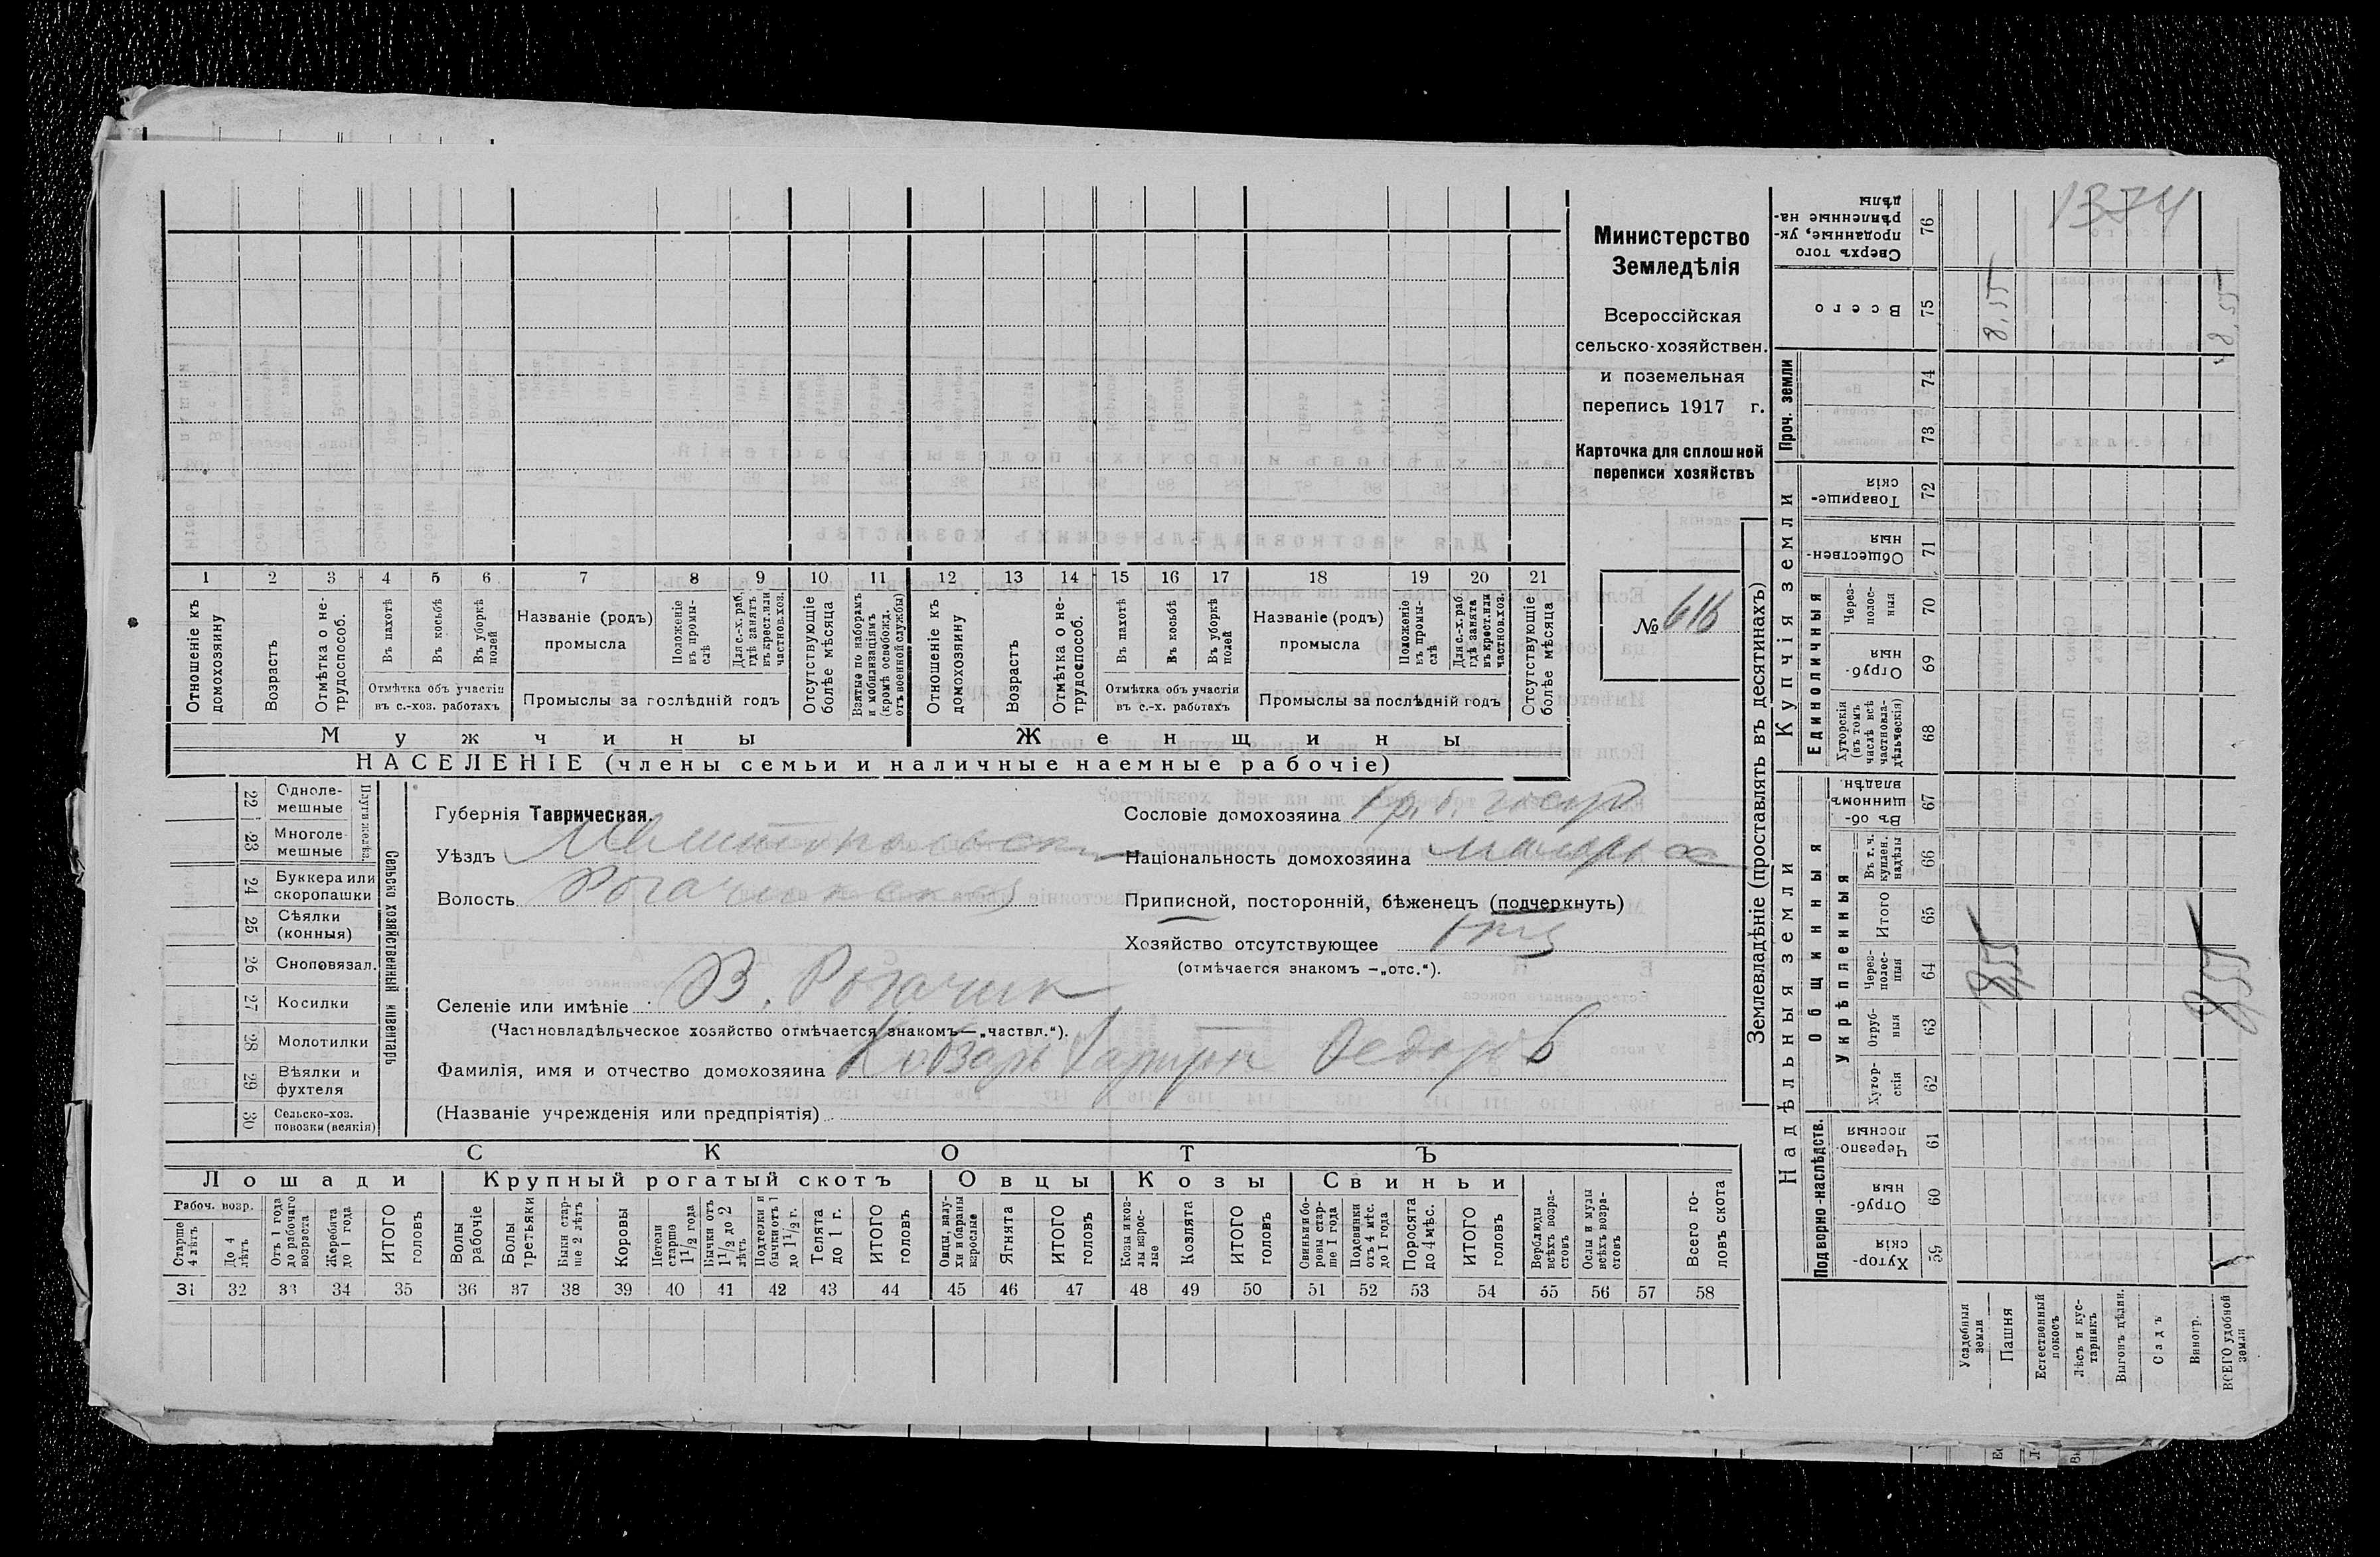 Министерство
Земледѣлія
Всероссійская
сельско-хозяйствен.
и поземельная
перепись 1917 г.
Карточка для сплошной
переписи хозяйствъ
№ 616
1374
1 2 3 4 5 6 7 8 9 10 11 12 13 14 15 16 17 18 19 20 21
Отношеніе къ домохозяину
Возрастъ
Отмѣтка о не-трудоспособ.
Въ пахотѣ
Въ косьбѣ
Въ уборкѣ полей
Отмѣтка объ участіи въ с.-хоз. работахъ
Названіе (родъ) промысла
Положеніе въ промы-слѣ
Для с.-х. раб., гдѣ занятъ въ крест. или частнов. хоз.
Промыслы за послѣдній годъ
Отсутствующіе болѣе мѣсяца
Взятые по наборамъ и мобилизаціямъ (кромѣ освобожд. отъ военной службы)
Отношеніе къ домохозяину
Возрастъ
Отмѣтка о не-трудоспособ.
Въ пахотѣ
Въ косьбѣ
Въ уборкѣ полей
Отмѣтка объ участіи въ с.-х. работахъ
Названіе (родъ) промысла
Положеніе въ промы-слѣ
Для с.-х. раб. гдѣ занята въ крест. или частнов. хоз.
Промыслы за послѣдній годъ
Отсутствующіе болѣе мѣсяца
Мужчины
Женщины
НАСЕЛЕНІЕ (члены семьи и наличные наемные рабочіе)
22 Однолемешные
23 Многолемешные
Плуги желѣз.
24 Буккера или скоропашки
25 Сѣялки (конныя)
26 Сноповязал.
27 Косилки
28 Молотилки
29 Вѣялки и фухтеля
30 Сельско-хоз. повозки (всякія)
Сельско хозяйственный инвентарь
Губернія Таврическая.
Уѣздъ Мелитопольскій
Волость Рогачикская
Селеніе или имѣніе В. Рогачик
(Частновладѣльческое хозяйство отмѣчается знакомъ—„частвл.“).
Фамилія, имя и отчество домохозяина Кобзарь Федоръ
(Названіе учрежденія или предпріятія)
Сословіе домохозяина Кр. б. госуд
Національность домохозяина малоросс
Приписной, посторонній, бѣженецъ (подчеркнуть)
Хозяйство отсутствующее
(отмѣчается знакомъ —„отс.“).
СКОТЪ
Лошади
Крупный рогатый скотъ
Овцы
Козы
Свиньи
Рабоч. возр.
Старше 4 лѣтъ
До 4 лѣтъ
Отъ 1 года до рабочаго возраста
Жеребята до 1 года
ИТОГО головъ
Волы рабочіе
Волы третьяки
Быки стар-ше 2 лѣтъ
Коровы
Нетели старше 1 1/2 года
Бычки отъ 1 1/2 до 2 лѣтъ
Подтелки и бычки отъ 1 до 1 1/2 г.
Телята до 1 г.
ИТОГО головъ
Овцы, валу-хи и бараны взрослые
Ягнята
ИТОГО головъ
Козы и коз-лы взрос-лые
Козлята
ИТОГО головъ
Свиньи и бо-ровы стар-ше 1 года
Подсвинки отъ 4 мѣс. до 1 года
Поросята до 4 мѣс.
ИТОГО головъ
Верблюды всѣхъ возра-стовъ
Ослы и мулы всѣхъ возра-стовъ
Всего го-ловъ скота
31 32 33 34 35 36 37 38 39 40 41 42 43 44 45 46 47 48 49 50 51 52 53 54 55 56 57 58
Землевладѣніе (проставлять въ десятинахъ)
Надѣльныя земли
Купчія земли
Проч. земли
Подворно-наслѣдств.
Общинныя
Укрѣпленныя
Единоличныя
Хутор-скія 59
Отруб-ныя 60
Черезпо-лосныя 61
Хутор-скія 62
Отруб-ныя 63
Через-полос-ныя 64
Итого 65
Въ т. ч. куплен. надѣлы 66
Въ об-щинномъ владѣн. 67
Хуторскія (въ томъ числѣ всѣ частновла-дѣльческія) 68
Отруб-ныя 69
Через-полос-ныя 70
Обществен-ныя 71
Товарище-скія 72
73
74
Всего 75
Сверхъ того проданные, ук-рѣпленные на-дѣлы 76
Усадебныя земли
Пашня
Естественный покосъ
Лѣсъ и кус-тарникъ
Выгонъ дѣлин.
Садъ
Виногр.
ВСЕГО удобной земли
8,55
8,55
8,55
8,55